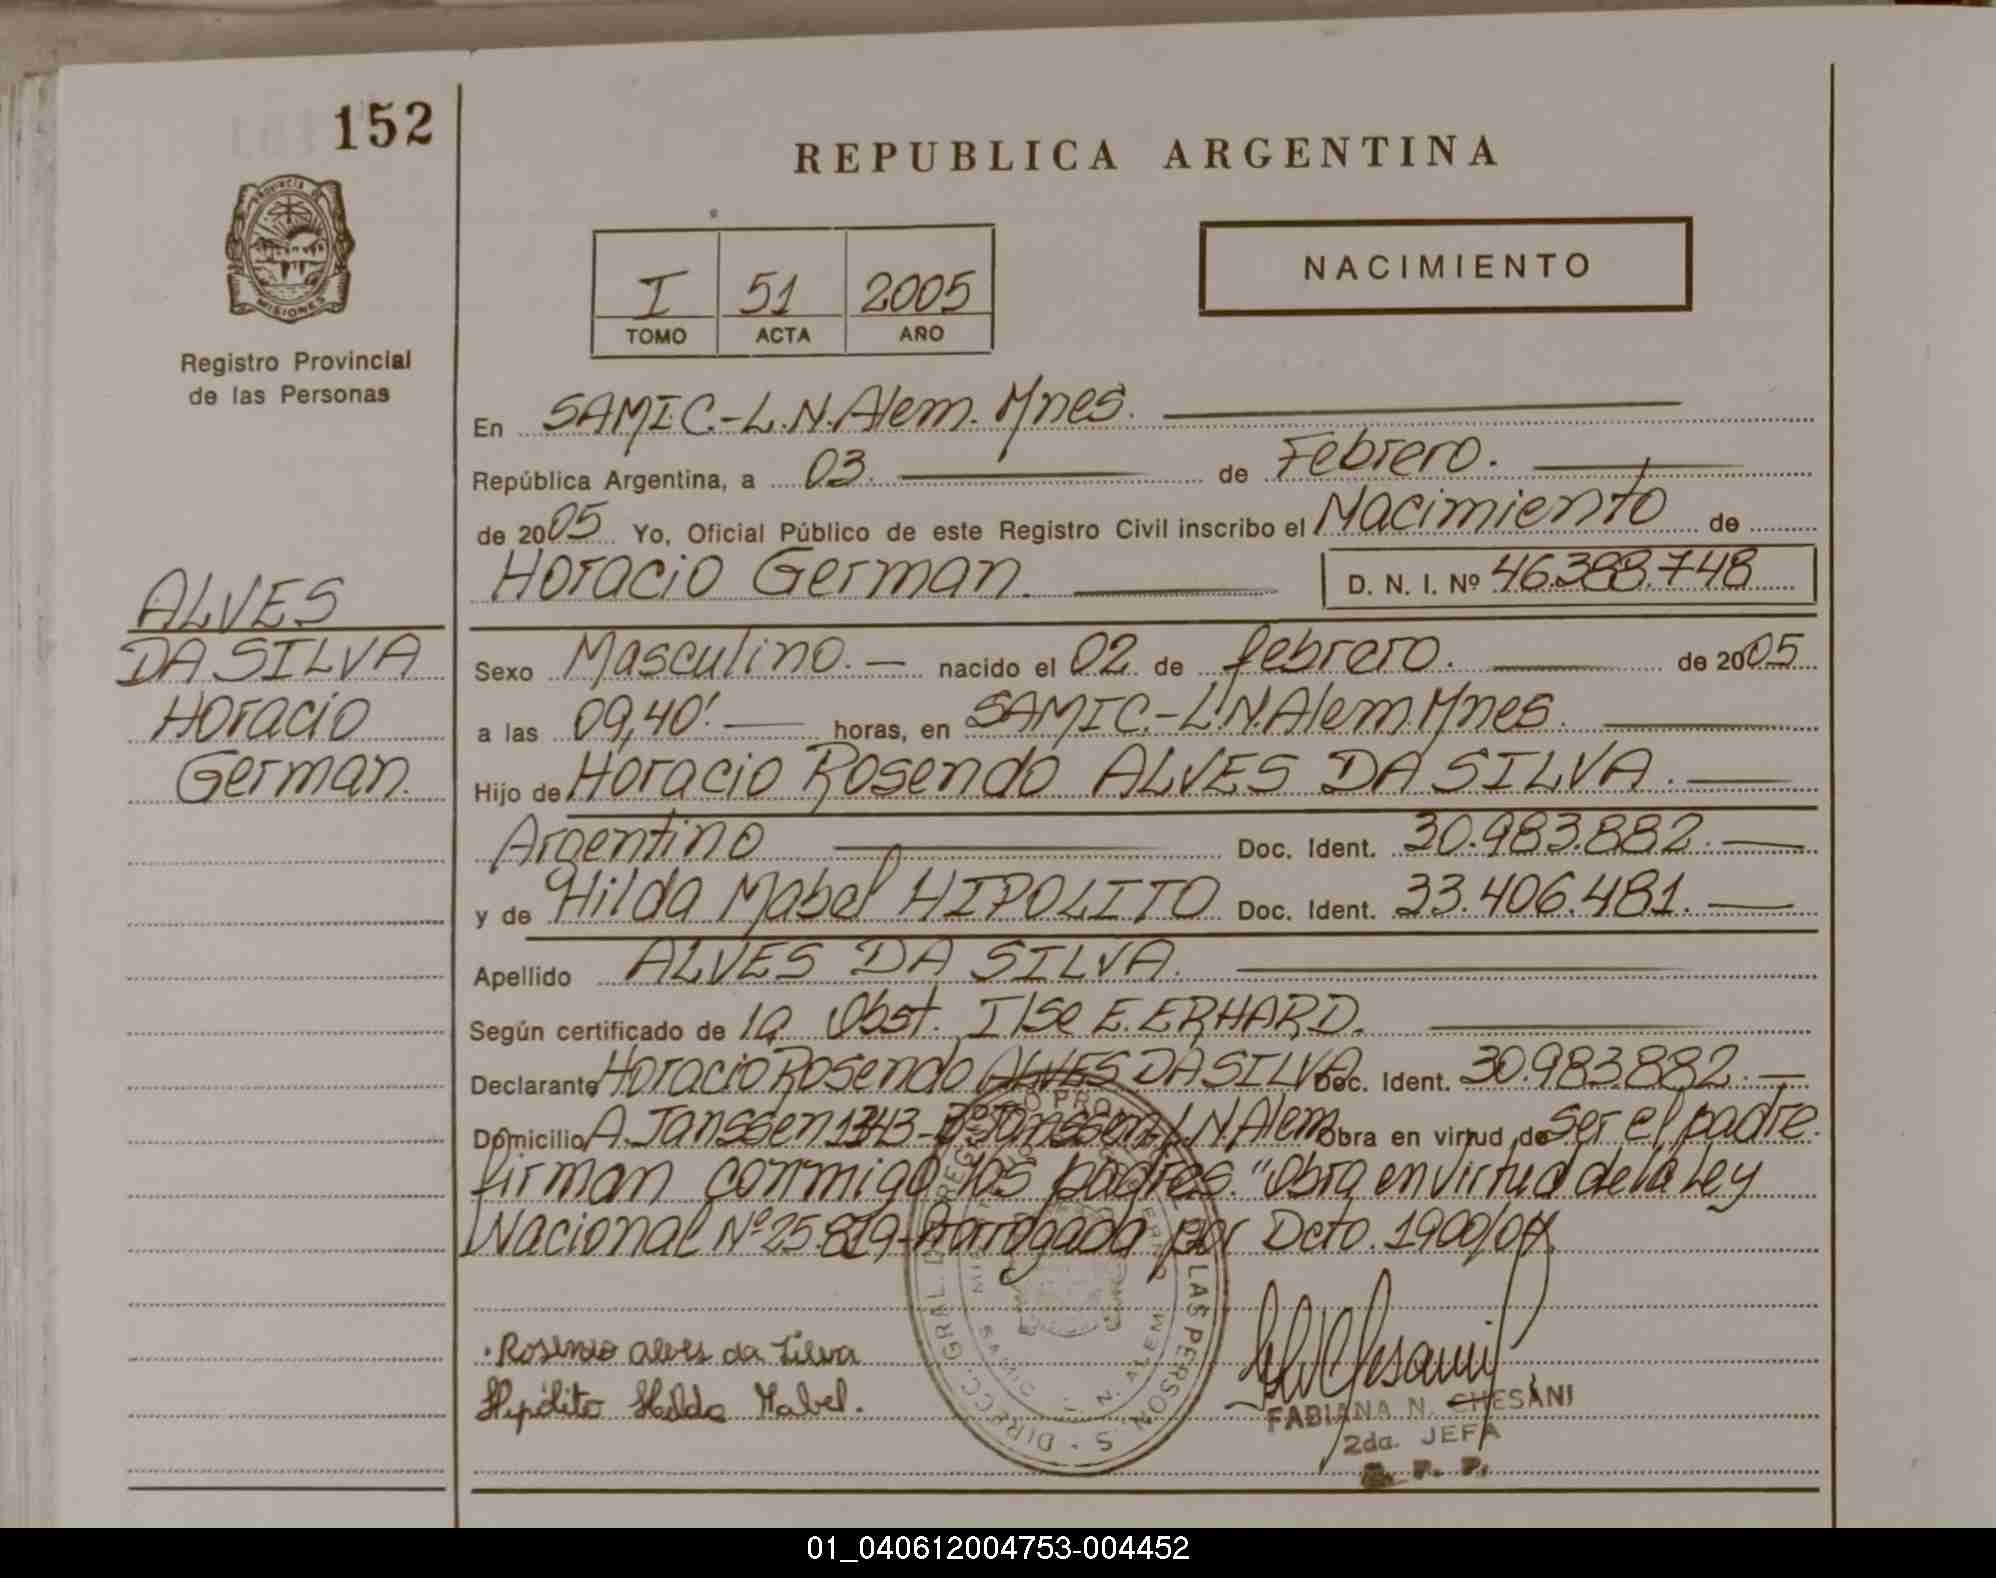 152
REPUBLICA ARGENTINA
PROVINCIA DE
MISIONES
Registro Provincial
de las Personas
I 51 2005
TOMO ACTA AÑO
NACIMIENTO
En SAMIC.-L.N.Alem. Mnes.
República Argentina, a 03. de Febrero.
de 2005 Yo, Oficial Público de este Registro Civil inscribo el Nacimiento de
Horacio German. D. N. I. Nº 46.388.748
ALVES
DA SILVA
Horacio
German.
Sexo Masculino. nacido el 02 de febrero. de 2005
a las 09,40'. horas, en SAMIC.-L.N.Alem.Mnes.
Hijo de Horacio Rosendo ALVES DA SILVA.
Argentino Doc. Ident. 30.983.882.
y de Hilda Mabel HIPOLITO Doc. Ident. 33.406.481.
Apellido ALVES DA SILVA.
Según certificado de la Obst. Ilse E. ERHARD.
Declarante Horacio Rosendo ALVES DA SILVA Doc. Ident. 30.983.882.
Domicilio A. Janssen 1343-Bº Janssen-L.N.Alem Obra en virtud de ser el padre.
firman conmigo los padres. "Obra en virtud de la Ley
Nacional Nº 25.819-Prorrogada por Dcto. 1900/04.
Rosendo alves da silva
Hipólito Hilda Mabel.
DIREC. GRAL. DE REGISTRO PROV. LAS PERSON S
N. ALEM
FABIANA N. CHESANI
2da. JEFA
01_040612004753-004452